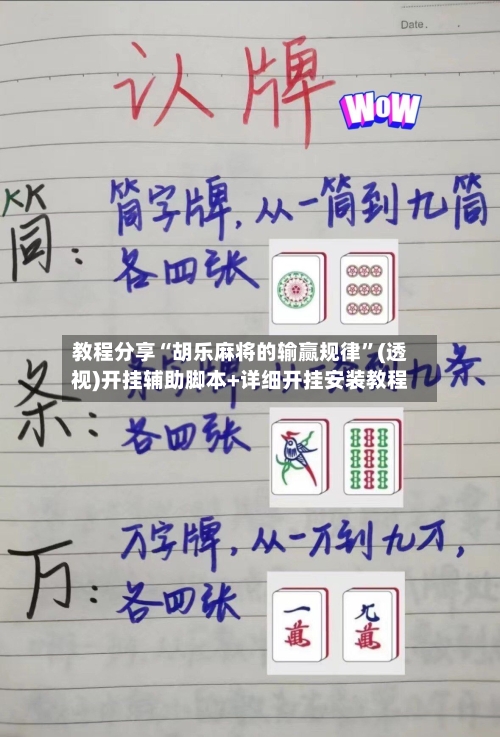 Date.
认牌
WOW
筒: 筒字牌,从一筒到九筒
各四张
教程分享“胡乐麻将的输赢规律”(透
视)开挂辅助脚本+详细开挂安装教程
条: 到九条
各四张
万: 万字牌,从一万到九万,
各四张
一萬 九萬